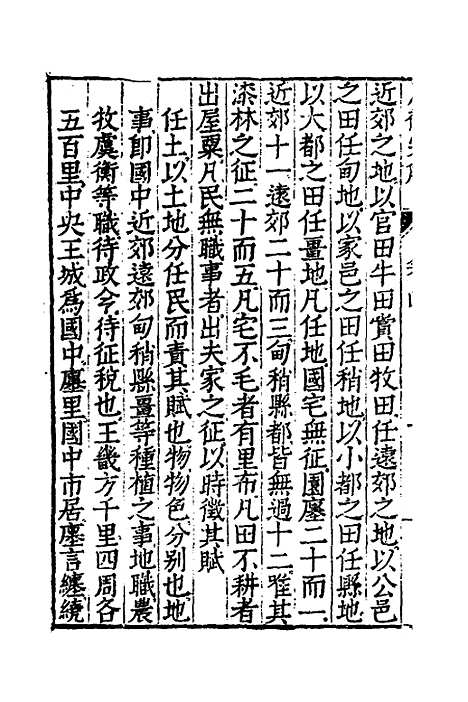 近郊之地以官田牛田賞田牧田任遠郊之地以公邑
之田任甸地以家邑之田任稍地以小都之田任縣地
以大都之田任畺地凡任地國宅無征園廛二十而一
近郊十一遠郊二十而三甸稍縣都皆無過十二唯其
漆林之征二十而五凡宅不毛者有里布凡田不耕者
出屋粟凡民無職事者出夫家之征以時徵其賦
任土以土地分任民而責其賦也物物色分別也地
事卽國中近郊遠郊甸稍縣畺等種植之事地職農
牧虞衡等職待政令待征稅也王畿方千里四周各
五百里中央王城爲國中廛里國中市居廛言纏繞